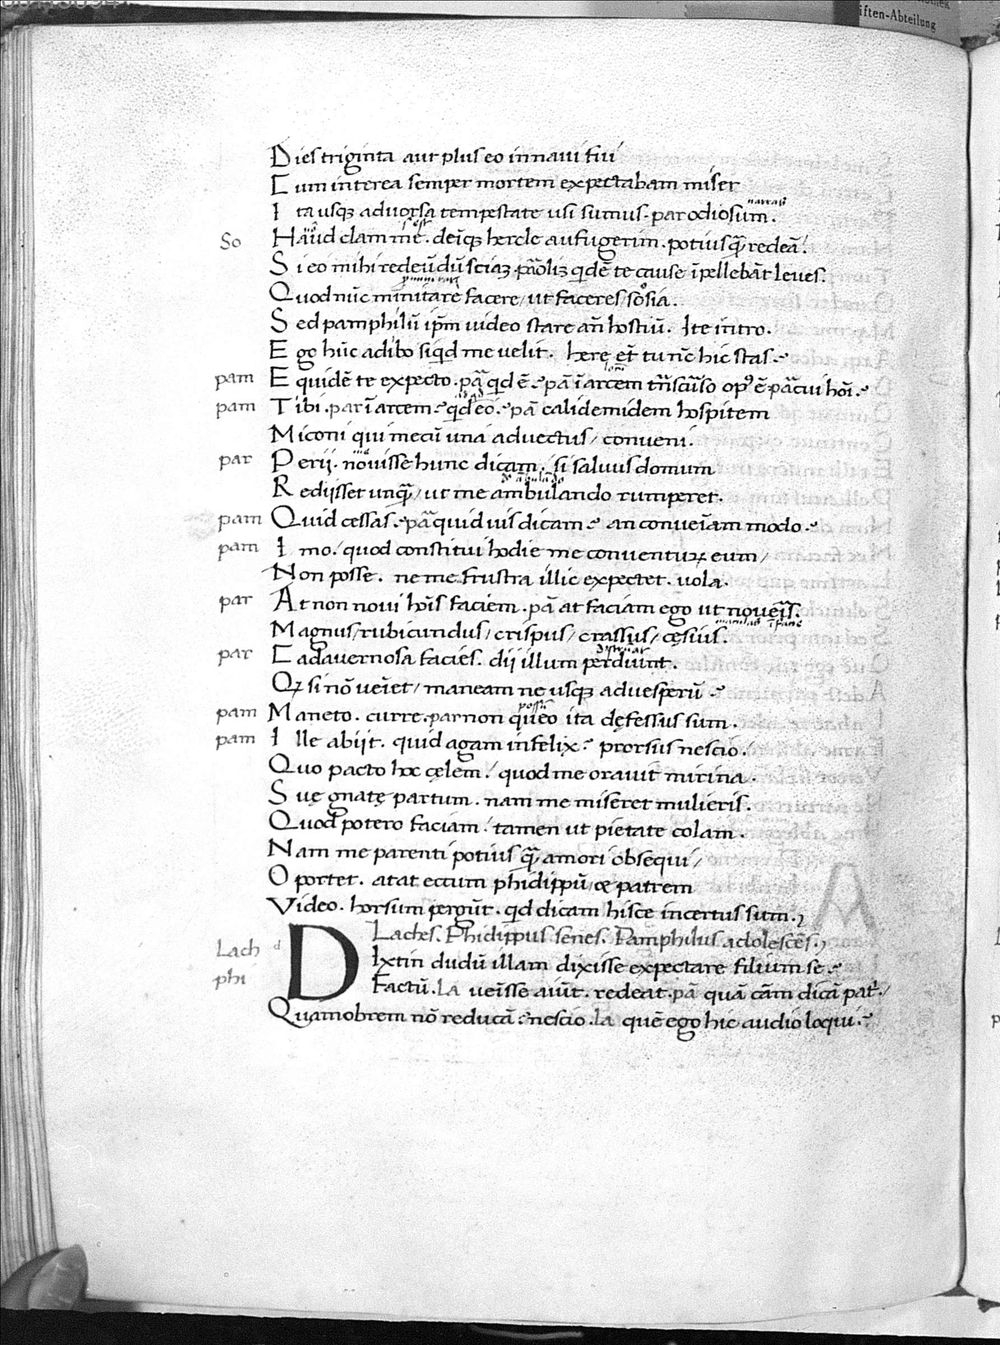 iften-Abteilung
Dies triginta aut plus eo in naui fui
Cum interea semper mortem expectabam miser
Ita usq; aduorsa tempestate usi sumus. par odiosum.
So Haud clam me. deiq; hercle aufugerim. potius q̄ redeā/.
Si eo mihi redeūdū sciaz. pā olim qdē te cause īpellebāt leues.
Quod nūc minitare facere/ ut faceres/ sosia.
Sed pamphilū ip̄m uideo stare an̄ hostiū. Ite intro.
Ego hūc adibo siqd me uelit. here et tu nc̄ hic stas.
pam Equidē te expecto. pā qd ē. pā ī arcem opꝰ ē. pā cui hoī.
pam Tibi. par ī arcem qd eo. pā calidemidem hospitem
Miconi qui mecū una aduectus/ conueni.
par Perij. nouisse hunc dicam. si saluus domum
Redijsset unq̄/ ut me ambulando rumperet.
pam Quid cessas. pā quid uis dicam an conueiam modo.
pam Imo/ quod constitui hodie me conuenturꝝ eum/
Non posse. ne me frustra illic expectet. uola.
par At non noui hoīs faciem. pā at faciam ego ut noueis.
Magnus/ rubicundus/ crispus/ crassus/ cęsius.
par Cadauernosa facies. dij illum perduint.
Qꝫ si nō ueiet/ maneam ne usq; ad uesperū
pam Maneto. curre. par non queo ita dęfessus sum.
pam Ille abijt. quid agam infelix prorsus nescio.
Quo pacto hoc cęlem/ quod me orauit mirina.
Suę gnatę partum. nam me miseret mulieris.
Quod potero faciam/ tamen ut pietate colam.
Nam me parenti potius q̄ amori obsequi/
Oportet. atat eccum phidippū & patrem
Video. horsum pergūt. qd dicam hisce incertus sum.
Laches. Phidippus senes. Pamphilus adolescēs.
Lach Dixtin dudū illam dixisse expectare filium se
phi Factū. La ueisse aiūt. redeat. pā quā cām dicā pat̄/
Quamobrem nō reducā nescio. la quē ego hic audio loqui.